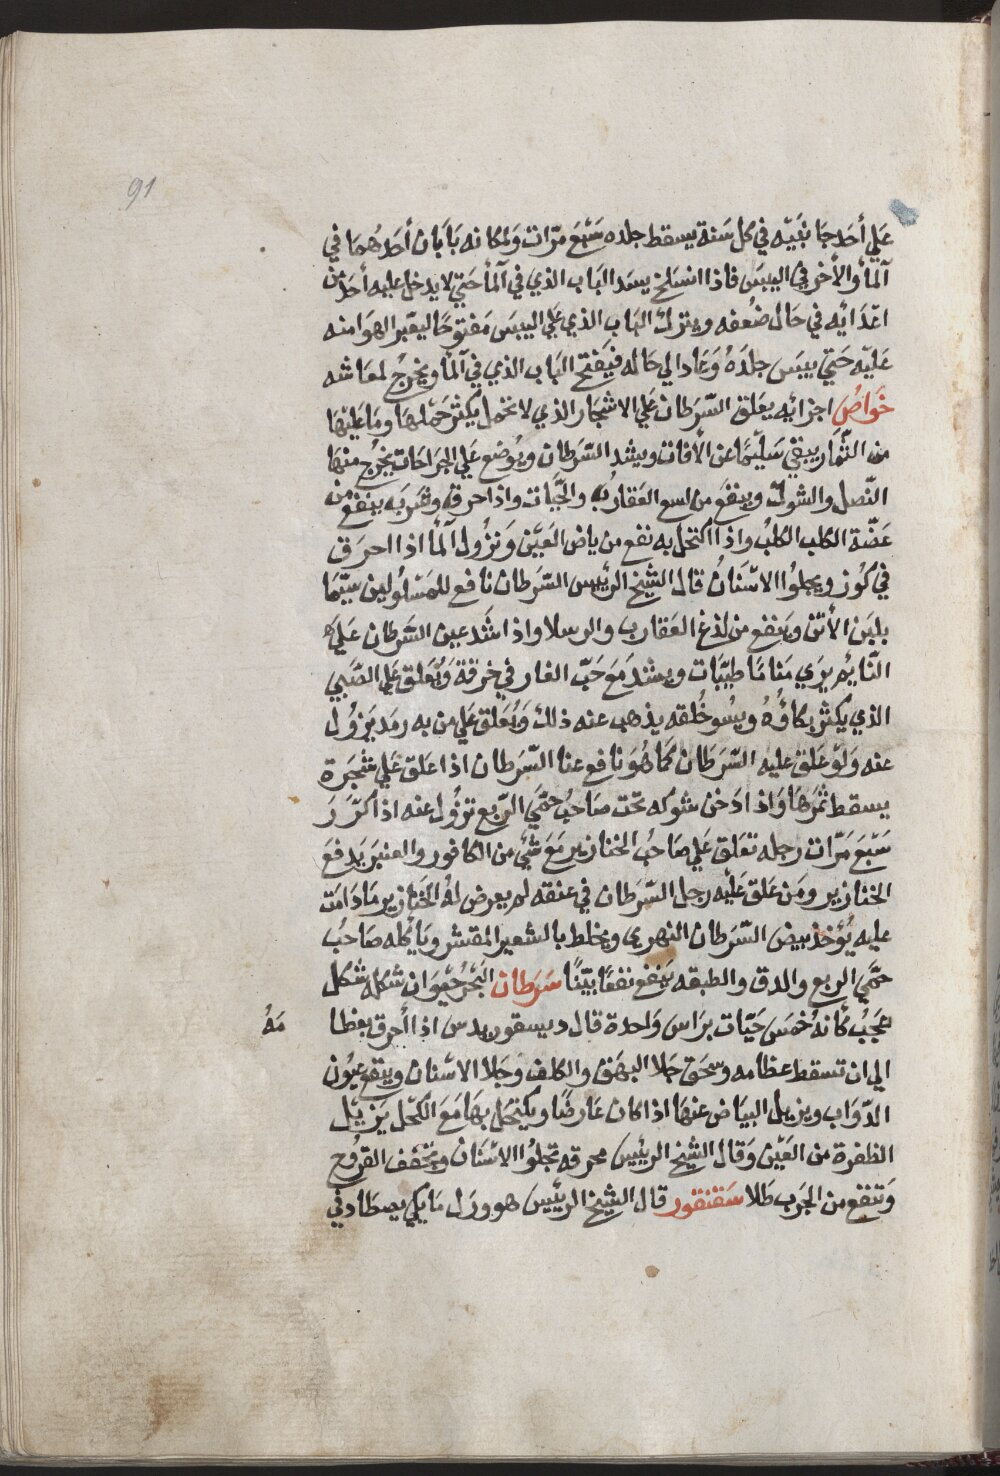 91
علي أحد جانبيه في كل سنة يسقط جلده سبع مرات ولمكانه بابان أحدهما في
آلمأ والأخر في اليبس فاذا انسلخ يسد الباب الذي في آلمأ حتي لا يدخل عليه أحد من
اعدايه في حال ضعفه ويترك الباب الذي علي اليبس مفتوحا ليعبر الهوا منه
عليه حتي ييبس جلده وعاد الي حاله فيفتح الباب الذي في آلمأ ويخرج لمعاشه
خواص اجزايه يعلق السرطان علي الاشجار الذي لا تحمل يكثر حملها وما عليها
من الثمار يبقي سليما عن الأفات ويشد السرطان ويوضع علي الجراحات يخرج منها
النصل والشوك وينفع من لسع العقارب والحيات واذا حرق وشربه ينفع من
عضة الكلب الكلب واذا اكتحل به نفع من بياض العين ونزول آلمأ اذا احرق
في كوز ويجلوا الاسنان قال الشيخ الرئيس السرطان نافع للمسلولين سيما
بلبن الأتن وينفع من لدغ العقارب والرسلا واذا شد عين السرطان علي
النايم يري مناما طيبات ويشد مع حب الغار في خرقة ويعلق علي الصبي
الذي يكثر بكاؤه ويسو خلقه يذهب عنه ذلك ويعلق علي من به رمد يزول
عنه ولو علق عليه السرطان كما هو نافع عنا السرطان اذا علق علي شجرة
يسقط ثمرها واذا دخن شوكه تحت صاحب حمي الربع تزول عنه اذا كرر
سبع مرات رجله تعلق علي صاحب الخنازير مع شئ من الكافور والعنبر يدفع
الخنازير ومن علق عليه رجل السرطان في عنقه لم يعرض له الخنازير ما دامت
عليه يؤخذ بيض السرطان النهري ويخلط بالشعير المقشر ويأكله صاحب
حمي الربع والدق والطبقه ينفع نفعا بينا سرطان البحر حيوان شكله شكل
عجب كأنه خمس حيات براس واحدة قال ديسقوريدس اذا أحرق بغطا
مه
الي ان تسقط عظامه وسحق جلا البهق والكلف وجلا الاسنان وينفع عيون
الدواب ويزيل البياض عنها اذا كان عارضا ويكتحل بها مع الكحل يزيل
الظفرة من العين وقال الشيخ الرئيس محرقه تجلوا الاسنان ويخفف القروح
وتنفع من الجرب طلا سقنقور قال الشيخ الرئيس هو ورل مايكي يصطاد في